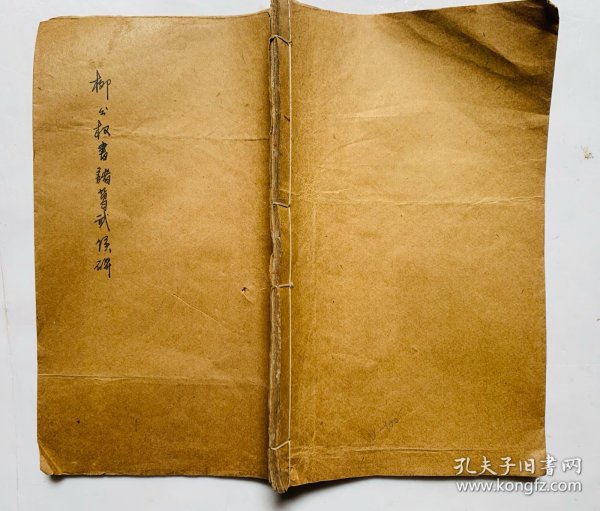 柳公权書諸葛武侯碑
孔夫子旧书网
www.kongfz.com